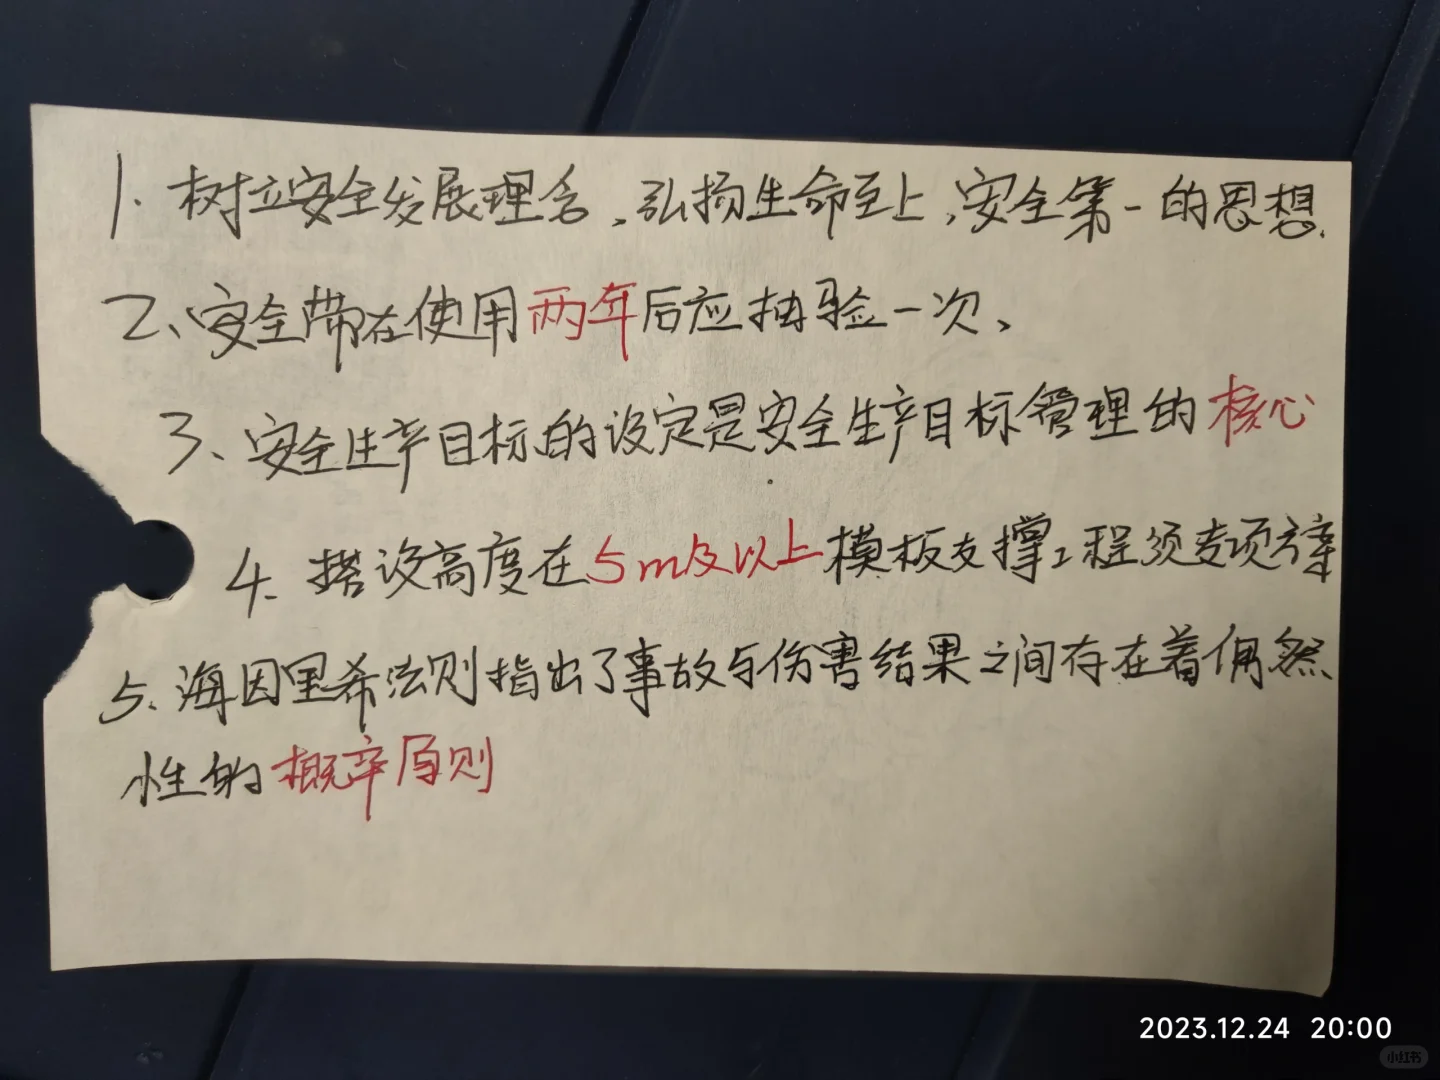 1. 树立安全发展理念，弘扬生命至上，安全第一的思想.
2、安全带在使用两年后应抽验一次、
3、安全生产目标的设定是安全生产目标管理的核心
4、搭设高度在5m及以上模板支撑工程须专项方案
5、海因里希法则指出了事故与伤害结果之间存在着偶然
性的概率原则
2023.12.24 20:00
小红书